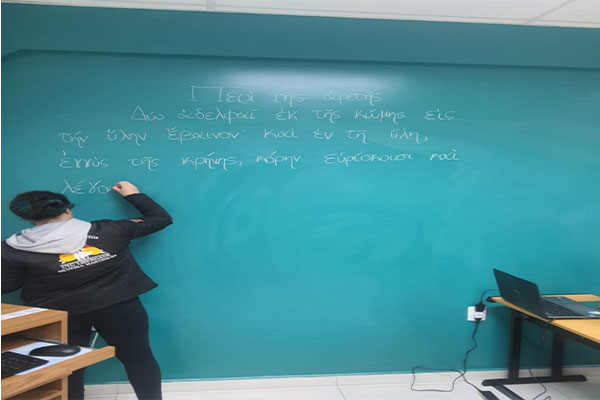 Περὶ τῆς ἀρετῆς
Δύο ἀδελφαὶ ἐκ τῆς κώμης εἰς
τὴν ὕλην ἔβαινον· καὶ ἐν τῇ ὕλῃ,
ἐγγὺς τῆς κρήνης, κόρην εὑρίσκουσι καὶ
λέγου